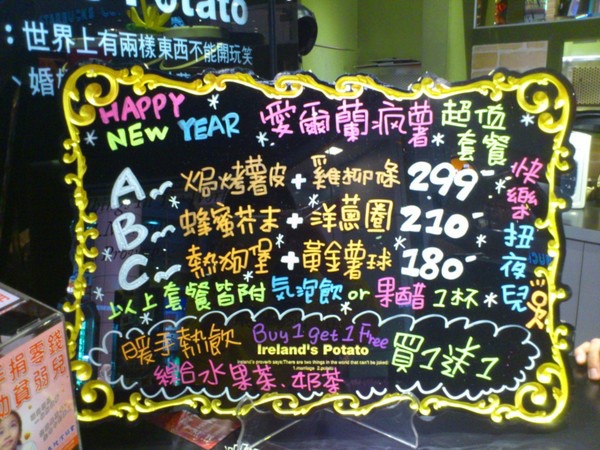 Potato
：世界上有兩樣東西不能開玩笑
、婚
HAPPY
NEW YEAR
愛爾蘭瘋薯超位
套餐
A～焗烤薯皮+雞柳條 299-
B～蜂蜜芥末+洋蔥圈 210-
C～熱狗堡+黃金薯球 180-
快樂扭夜兒
以上套餐皆附氣泡飲 or 果醋1杯
暖手熱飲 Buy 1 get 1 Free 買1送1
Ireland's Potato
Ireland's proverb says:There are two things in the world that can't be joked:
1.marriage 2.potato
綜合水果茶.奶茶
捐零錢
助貧弱兒